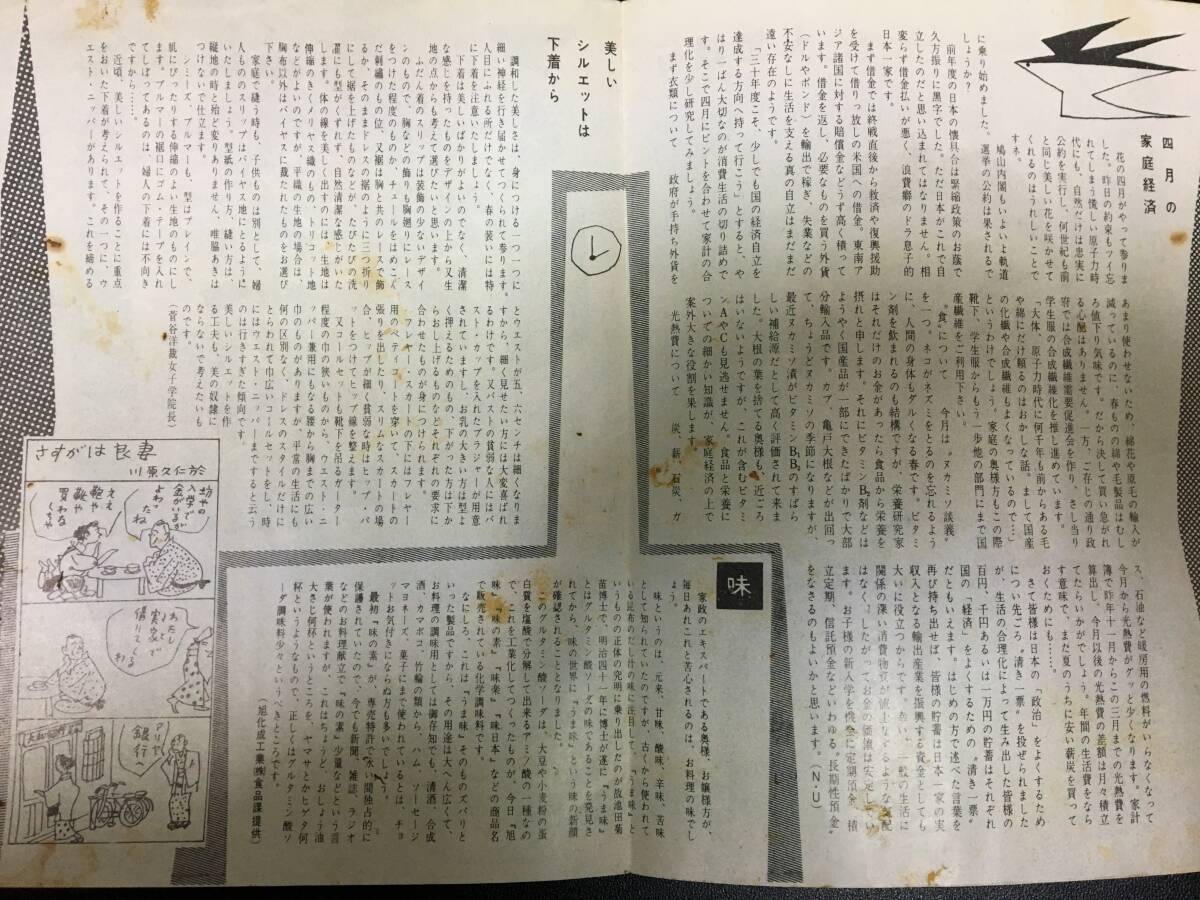 四月の
家庭経済
花の四月がやって参りま
した。昨日の約束もツイ忘
れてしまう慌しい原子力時
代にも、自然だけは忠実に
公約を実行し、何世紀も前
と同じ美しい花を咲かせて
くれるのはうれしいことで
すネ。
鳩山内閣もいよいよ軌道
に乗り始めました。選挙の公約は果されるで
しょうか？
前年度の日本の懐具合は緊縮政策のお蔭で
久方振りに黒字でした。ただ日本がこれで自
立したのだと思い込まれてはなりません。相
変らず借金払いが悪く、浪費癖のドラ息子的
日本一家です。
まず借金では終戦直後から救済や復興援助
を受けて借りっ放しの米国への借金。東南ア
ジア諸国に対する賠償金などうず高く積って
います。借金を返し、必要なものを買う外貨
（ドルやポンド）を輸出で稼ぎ、失業などの
不安なしに生活を支える真の自立はまだまだ
遠い存在のようです。
「三十年度こそ、少しでも国の経済自立を
達成する方向へ持って行こう」とすると、や
はり一ばん大切なのが消費生活の切り詰めで
す。そこで四月にピントを合わせて家計の合
理化を少し研究してみましょう。
まず衣類について　政府が手持ち外貨を
あまり使わせないため、綿花や原毛の輸入が
減っているのに、春ものの綿や毛製品はむし
ろ値下り気味です。だから決して買い急がれ
る心配はありません。一方、ご存じの通り政
府では合成繊維需要促進会を作り、さし当り
学生服の合成繊維化を推し進めています。
「大体、原子力時代に何千年も前からある毛
や綿にだけ頼るのはおかしな話。まして国産
の化繊や合成繊維もよくなっているので…」
というわけでしょう。家庭の奥様方もこの際
靴下、学生服からもう一歩他の部門にまで国
産繊維をご利用下さい。
〝食〟について　今月は〝ヌカミソ談義〟
を一つ。ネコがネズミをとるのを忘れるよう
に、人間の身体もダルくなる春です。ビタミ
ン剤を飲まれるのも結構ですが、栄養研究家
はそれだけのお金があったら食品から栄養を
摂れと申します。それにビタミンB剤などは
ようやく国産品が一部にできたばかりで大部
分輸入品です。カブ、亀戸大根などが出回っ
て、ちょうどヌカミソの季節になりますが、
最近ヌカミソ漬がビタミンBのすばら
しい補給源だとして高く評価されて来ま
した。大根の葉を捨てる奥様も、近ごろ
はないようですが、これが含むビタミ
ンAやCも見逃せません。食品と栄養に
ついての細かい知識が、家庭経済の上で
案外大きな役割を果します。
光熱費について　炭、薪、石炭、ガ
ス、石油など暖房用の燃料がいらなくなって
今月から光熱費がグッと少くなります。家計
簿で昨年十一月からこの三月までの光熱費を
算出し、今月以後の光熱費の差額は月々積立
てたらいかがでしょう。年間の生活費をなら
す意味で、まだ夏のうちに安い薪炭を買って
おくためにも……。
さて皆様は日本の「政治」をよくするため
につい先ごろ〝清き一票〟を投ぜられました
が、生活の合理化によって生み出した皆様の
百円、千円あるいは一万円の貯蓄はそれぞれ
国の「経済」をよくするための〝清き一票〟
だともいえます。はじめの方で述べた言葉を
再び持ち出せば、皆様の貯蓄は日本一家の実
収入となる輸出産業を振興する資金としても
大いに役立つからです。
関係の深い消費物資が値上りなどするような気配
はなく、したがってお金の価値は安定してい
ます。お子様の新入学を機会に定期預金、積
立定期、信託預金などいわゆる〝長期性預金〟
をなさるのもよいかと思います。（N・U）
味
家政のエキスパートである奥様、お嬢様方が、
毎日あれこれと苦心されるのは、お料理の味でし
ょう。
味というのは、元来、甘味、酸味、辛味、苦味
として知られていたのですが、古くから使われて
いる昆布のだし汁の味に注目して、「うま味」と
いうものの本体の究明に乗り出したのが故池田菊
苗博士で、明治四十一年に博士が遂に「うま味」
とはグルタミン酸ソーダの味であることを発見さ
れてから、味の世界に「うま味」という味の新顔
が確認されることとなりました。
このグルタミン酸ソーダは、大豆や小麦粉の蛋
白質を塩酸で分解して出来るアミノ酸の一種なの
で、これを工業化してつくったものが、今日「旭
味」「味の素」「味楽」「味日本」などの商品名
で販売されている化学調味料です。
なにしろ、これは「うま味」そのもののズバリと
いった製品ですから、その用途は大へん広くて、
お料理の調味用としては御存知でも、清酒、合成
酒、カマボコ、竹輪の類から、ハム、ソーセージ
マヨネーズ、菓子にまで使われているとは、チョ
ットお気付きにならぬ方も多いでしょう。
最初「味の素」が、専売特許で永い間独占的に
保護されていたので、今でも新聞、雑誌、ラジオ
などのお料理献立で「味の素」少量などという言
葉が使われますが、これはちょうど、おしょう油
大さじ何杯というところを、ヤマサとかヒゲタ何
杯というようなもので、正しくはグルタミン酸ソ
ーダ調味料少々というべきところです。
（旭化成工業㈱食品課提供）
美しい
シルエットは
下着から
調和した美しさは、身につける一つ一つに
細い神経を行き届かせてこそ作られて参ります。
人目にふれる所だけでなく、春の装いには特
に下着を注意いたしましょう。
下着は美しいばかりがよいのでなく、清潔
な感じを持ったものをデザインの上から又生
地の点からも考えて選びたいと思います。
ふだん着のスリップは装飾の少ないデザイ
ンのもので胸などの飾りも胸廻りにレースか
だけ刺繍のもの位、又裾は胸と共のレースで飾
るか、そのままドレスの裾のように三つ折り
をつけた程度のものか、チュールをはめこん
で裾を上げたものなどが、たびたびの洗
濯にも型がくずれず、自然清潔な感じがいた
します。体の線を美しく出すのには、生地は
伸縮のきくメリヤス織のもの、トリコット地
などが良いのですが、平織の生地の場合は、
胸布以外はバイヤスに裁たれたものをお選び
下さい。
家庭で縫う時も、子供ものは別として、婦
人もののスリップはバイヤス地にとるように
いたしましょう。型紙の作り方、縫い方は、
縦地の時と殆ど変りありません、唯脇あきは
つけないで仕立ます。
シミーズ、ブルマーも、型はプレインで、
肌にぴったりする伸縮のよい生地のものにし
ます。ブルマーの裾口にゴム・テープを入れ
てしぼってあるのは、婦人の下着には不向き
ですから……
近頃、美しいシルエットを作ることに重点
をおいた下着が考えられて、その一つに、ウ
エスト・ニッパーがあります。これを締める
とウエストが五、六センチは細くなりま
すから、細く見せたい方には大変喜ばれ
るわけです。又バストの貧弱な人にはバ
スト・カップを入れたブラジャーが用意
されていますし、お乳の大きい方は型よ
く押えるためのもの、下がった方は下か
らおし上げるものなどそれぞれの要求に
合わせたものが身につけられます。
フレヤー・スカートの下にはフレヤー
用のペティコートを穿いて、スカートの
張りを出したり、スリムなスカートの場
合、ヒップが細く貧弱な時はヒップ・パ
ットをつけてヒップ線を整えます。
又コールセットも靴下を吊るガーター
程度の巾の狭いものから、ウエスト・ニ
ッパー兼用にもなる腰から胸までの広い
巾のものがありますが、平常の生活にも
何の区別なく、ドレスのスタイルだけに
とらわれて巾広いコールセットをし、時
にはウエスト・ニッパーまですると云う
のは行きすぎた傾向です。
美しいシルエットを作
る工夫も、美の奴隷に
ならないで考えたいも
のです。
（菅谷洋裁女子学院長）
さすがは良妻
川原久仁於
坊やの
入学で
金がいるが
よわったね
ええ
鞄や
靴や
買わな
くちゃ
わたし
実家で
借りてくる
わ
アリャ
銀行へ